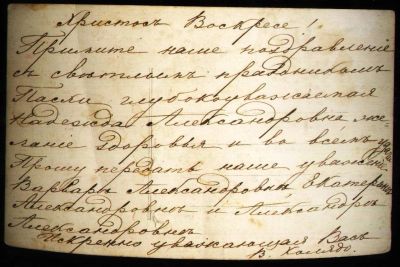 Христосъ Воскресе!
Примите наше поздравленіе
съ свѣтлымъ праздникомъ
Пасхи глубокоуважаемая
Надежда Александровна же-
ланіе здоровья и во всѣмъ
Прошу передать наше уваженіе
Варвары Александровны, Екатерины
Александровны и Александры
Александровны
Искренно уважающая Васъ
В. Холядо.